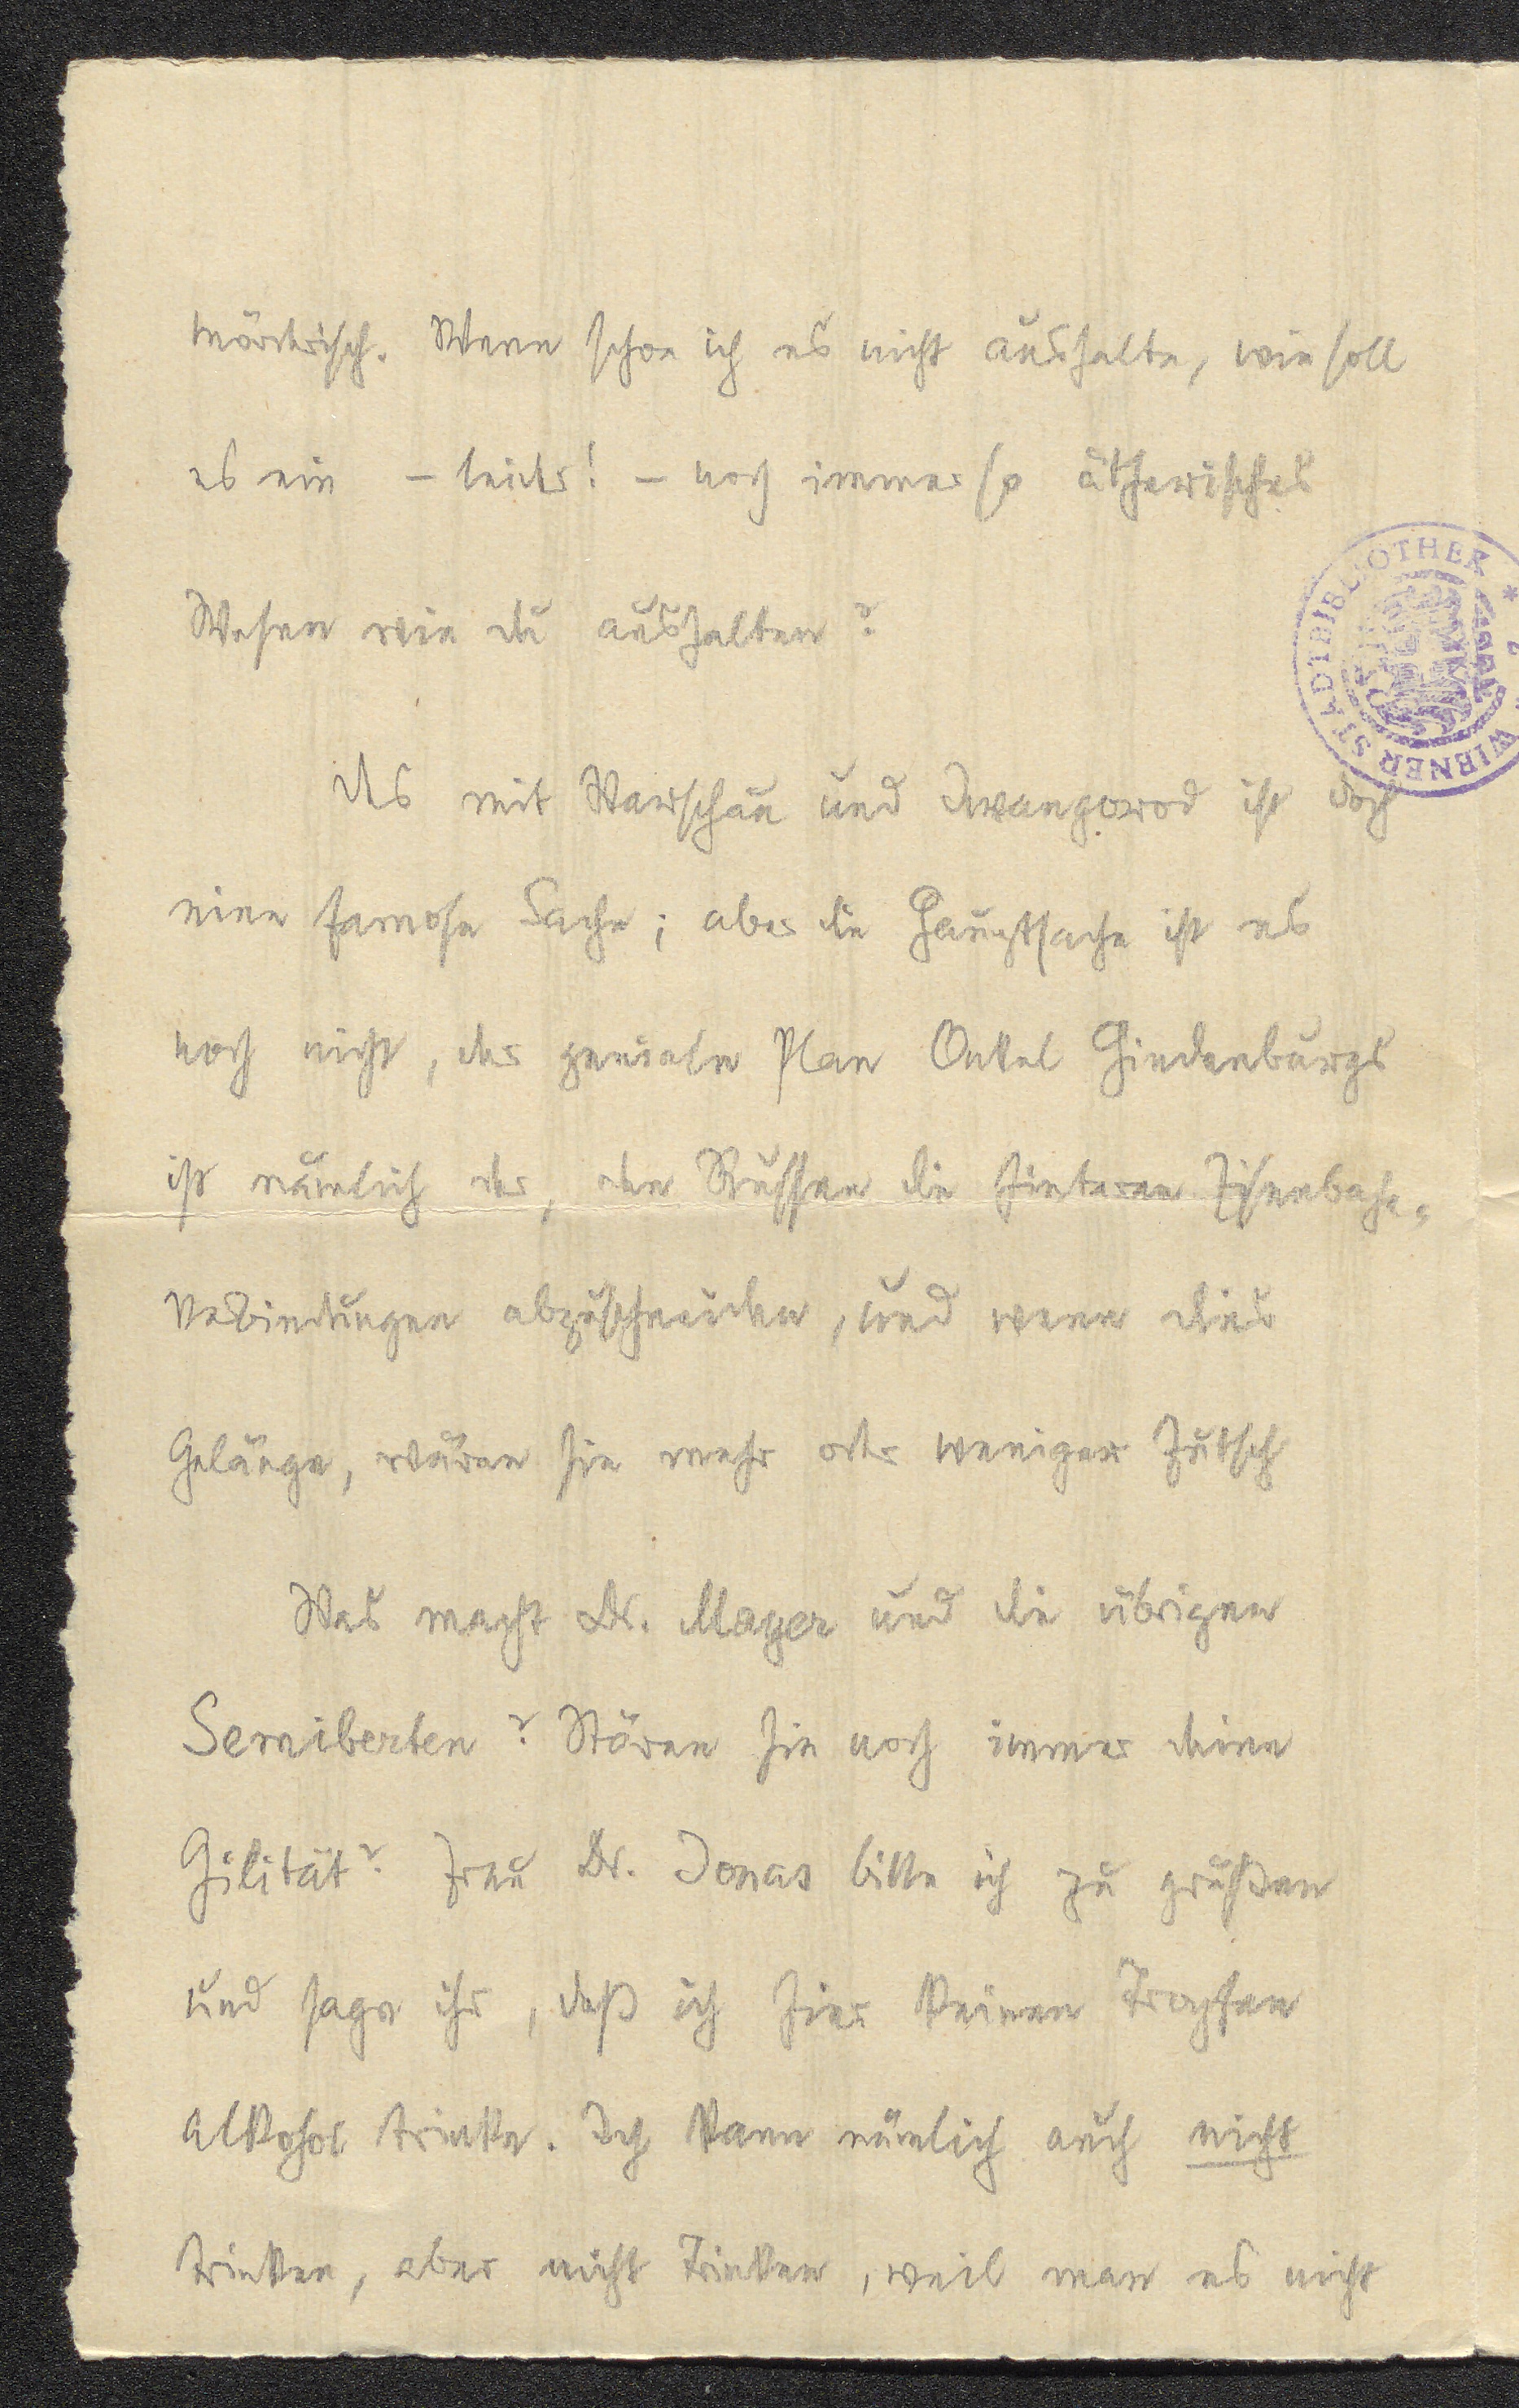 mördrisch. Wenn schon ich es nicht aushalte, wie soll
es ein – leider! – noch immer so ätherisches
Wesen wie du aushalten?
Das mit Warschau und Iwangorod ist doch
eine famose Sache; aber die Hauptsache ist es
noch nicht, der geniale Plan Onkel Hindenburgs
ist nämlich der, den Russen die hinteren Eisenbahn-
Verbindungen abzuschneiden, und wenn dies
Gelänge, wären sie mehr oder weniger futsch
Was macht Dr. Mayer und die übrigen
Semiberten? Stören sie noch immer deine
Gilität? Frau Dr. Jonas bitte ich zu grüßen
und sage ihr, daß ich hier keinen Tropfen
Alkohol trinke. Ich kann nämlich auch nicht
trinken, aber nicht trinken, weil man es nicht
WIENER STADTBIBLIOTHEK *